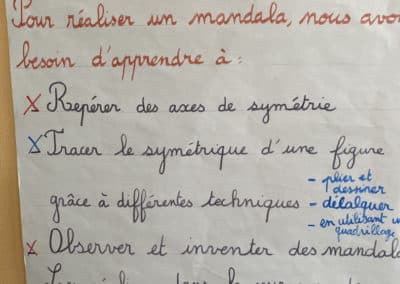 Pour réaliser un mandala, nous avo
besoin d'apprendre à :
X Repérer des axes de symétrie
X Tracer le symétrique d'une figure
grâce à différentes techniques
- plier et
dessiner
- décalquer
- en utilisant u
quadrillage
X Observer et inventer des mandala